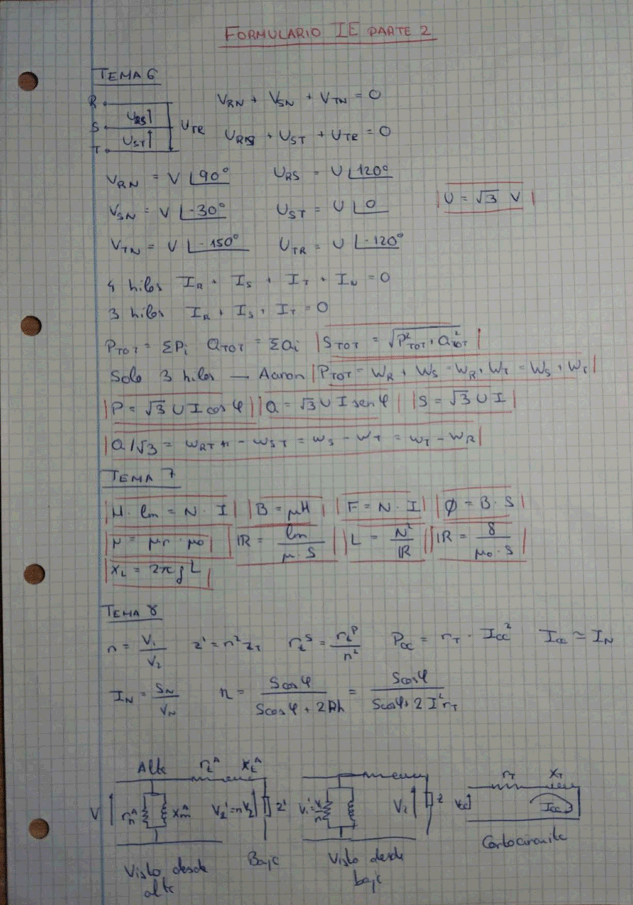 FORMULARIO IE PARTE 2
TEMA 6
R
S
T
U_RS
U_ST
U_TR
V_RN + V_SN + V_TN = 0
U_RS + U_ST + U_TR = 0
V_RN = V∠90° U_RS = U∠120°
V_SN = V∠-30° U_ST = U∠0 U = √3 V
V_TN = V∠-150° U_TR = U∠-120°
4 hilos I_R + I_S + I_T + I_N = 0
3 hilos I_R + I_S + I_T = 0
P_TOT = ΣPi Q_TOT = ΣQi S_TOT = √(P²_TOT + Q²_TOT)
Solo 3 hilos — Aaron P_TOT = W_R + W_S = W_R + W_T = W_S + W_T
P = √3 U I cos φ Q = √3 U I sen φ S = √3 U I
Q/√3 = W_S - W_T = W_T - W_R
TEMA 7
H · lm = N · I B = μH F = N · I ϕ = B · S
μ = μr · μ0 IR = lm / (μ · S) L = N² / IR IR = δ / (μ0 · S)
X_L = 2π f L
TEMA 8
n = V1 / V2 z' = n² z2 P_cc = r_T · I_cc² I_cc ≃ I_N
I_N = S_N / V_N η = S cos φ / (S cos φ + 2Ph) = S cos φ / (S cos φ + 2 I² r_T)
Alte r_T X_T
V V2' = nV2 z' V2 z I_cc
Visto desde alte Baje Visto desde baje Cortocircuite